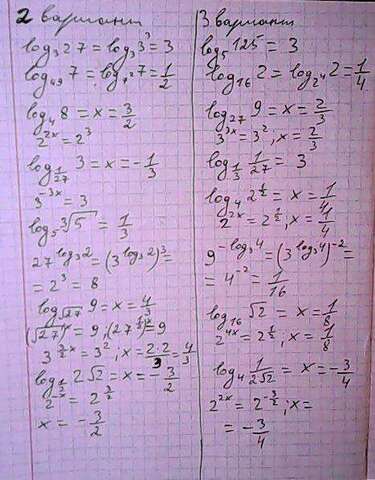 2 варианты
log₃27 = log₃3³ = 3
log₄₉7 = log₇²7 = 1/2
log₄8 = x = 3/2
2²ˣ = 2³
log_{1/27} 3 = x = -1/3
3⁻³ˣ = 3
log₅∛5 = 1/3
27^{log₃2} = (3^{log₃2})³ =
= 2³ = 8
log_{√27} 9 = x = 4/3
(√27)ˣ = 9; (27^{1/2})ˣ = 9
3^{3/2 x} = 3²; x = 2·2/3 = 4/3
log_{1/2} 2√2 = x = -3/2
2⁻ˣ = 2^{3/2}
x = -3/2
3 варианты
log₅125 = 3
log₁₆2 = log₂⁴2 = 1/4
log₂₇9 = x = 2/3
3³ˣ = 3², x = 2/3
log_{1/3} 1/27 = 3
log₄2^{1/2} = x = 1/4
2²ˣ = 2^{1/2}, x = 1/4
9^{-log₃4} = (3^{log₃4})⁻² =
= 4⁻² = 1/16
log₁₆√2 = x = 1/8
2⁴ˣ = 2^{1/2}; x = 1/8
log₄ 1/(2√2) = x = -3/4
2²ˣ = 2^{-3/2}; x =
= -3/4